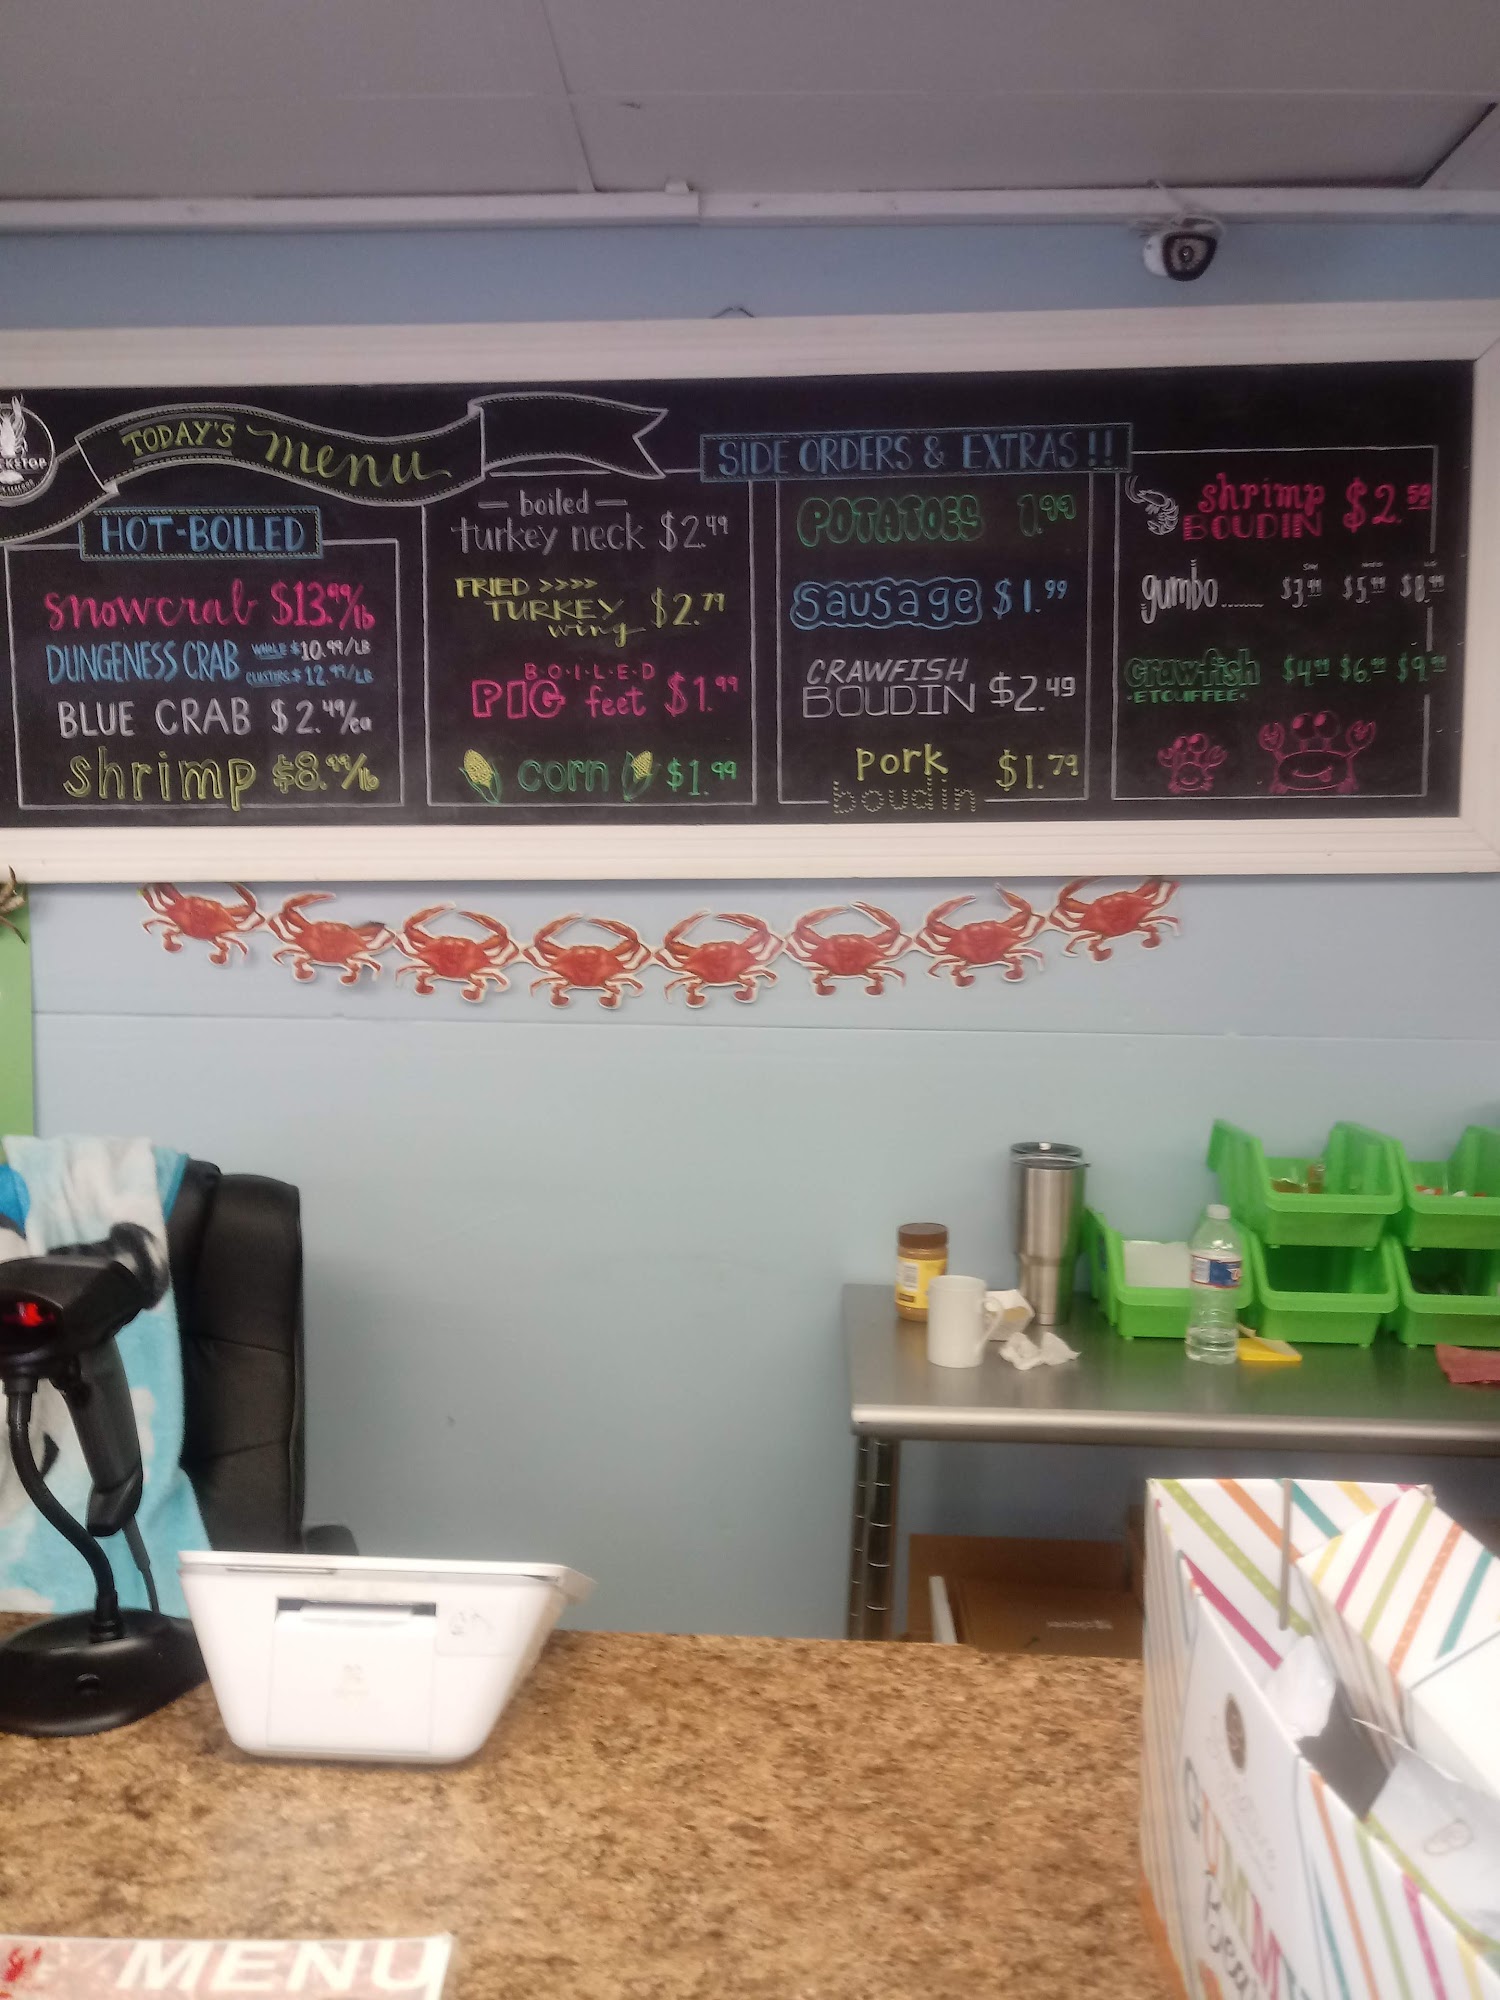 CKSTOP
TODAY'S menu
HOT-BOILED
snowcrab $13.99/lb
DUNGENESS CRAB WHOLE $10.99/LB
CLUSTERS $12.99/LB
BLUE CRAB $2.49/ea
shrimp $8.99/lb
boiled
turkey neck $2.49
FRIED >>>>
TURKEY $2.79
wing
B·O·I·L·E·D
PIG feet $1.99
corn $1.99
SIDE ORDERS & EXTRAS!!
POTATOES 1.99
sausage $1.99
CRAWFISH
BOUDIN $2.49
pork $1.79
boudin
shrimp $2.59
BOUDIN
gumbo........ $3.99 $5.99 $8.99
crawfish $4.99 $6.99 $9.99
·ETOUFFEE·
clover
MENU